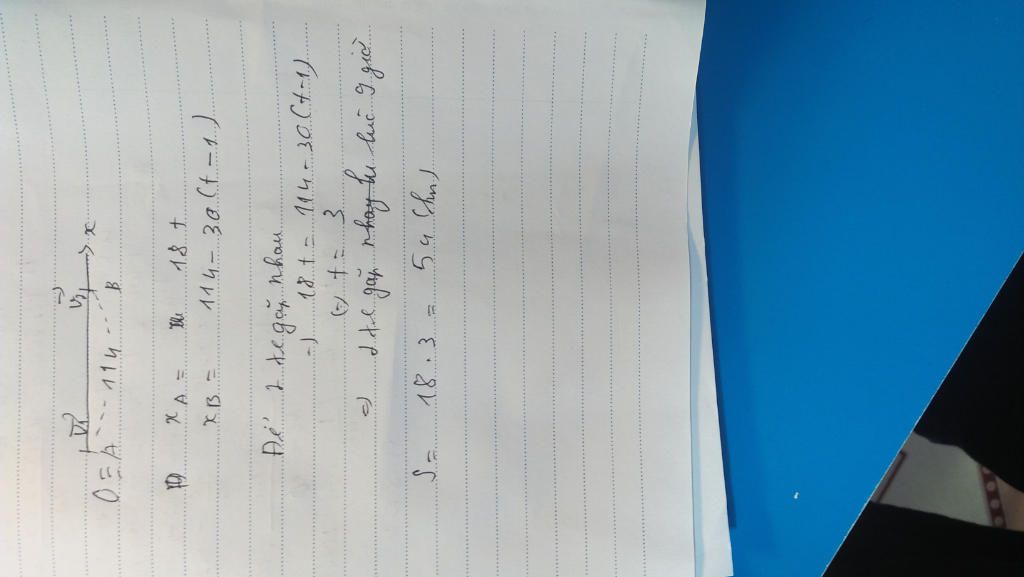 V1 V2 x
O ≡ A --- 114 --- B
xA = 18t
xB = 114 - 30(t-1)
Để 2 xe gặp nhau
=> 18t = 114 - 30(t-1)
(=) t = 3
=> 2 xe gặp nhau lúc 9 giờ
S = 18.3 = 54 (km)